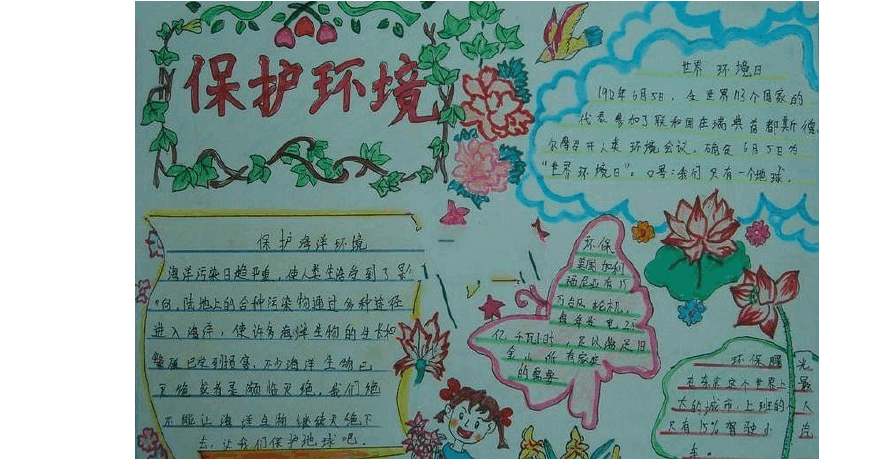 保护环境
世界 环境日
1972年6月5日，全世界113个国家的
代表参加了联和国在瑞典首都斯德
尔摩召开人类环境会议，确定6月5日为
“世界环境日”。口号：我们只有一个地球．
保护海洋环境
海洋污染日趋严重，使人类生活受到了影
响，陆地上的各种污染物通过多种途径
进入海洋，使许多海洋生物的生长和
繁殖已受到损害，不少海洋生物已
灭绝或者是濒临灭绝，我们绝
不能让海洋生物继续灭绝下
去，让我们保护地球吧．
环保
美国加利
福尼亚有15
万台风
每年发电
亿千瓦时，足以满足旧
金山所有家庭
的需要
环保曝光
在东京这个世界上最
大的城市，上班的人
只有15%驾驶小汽
车。